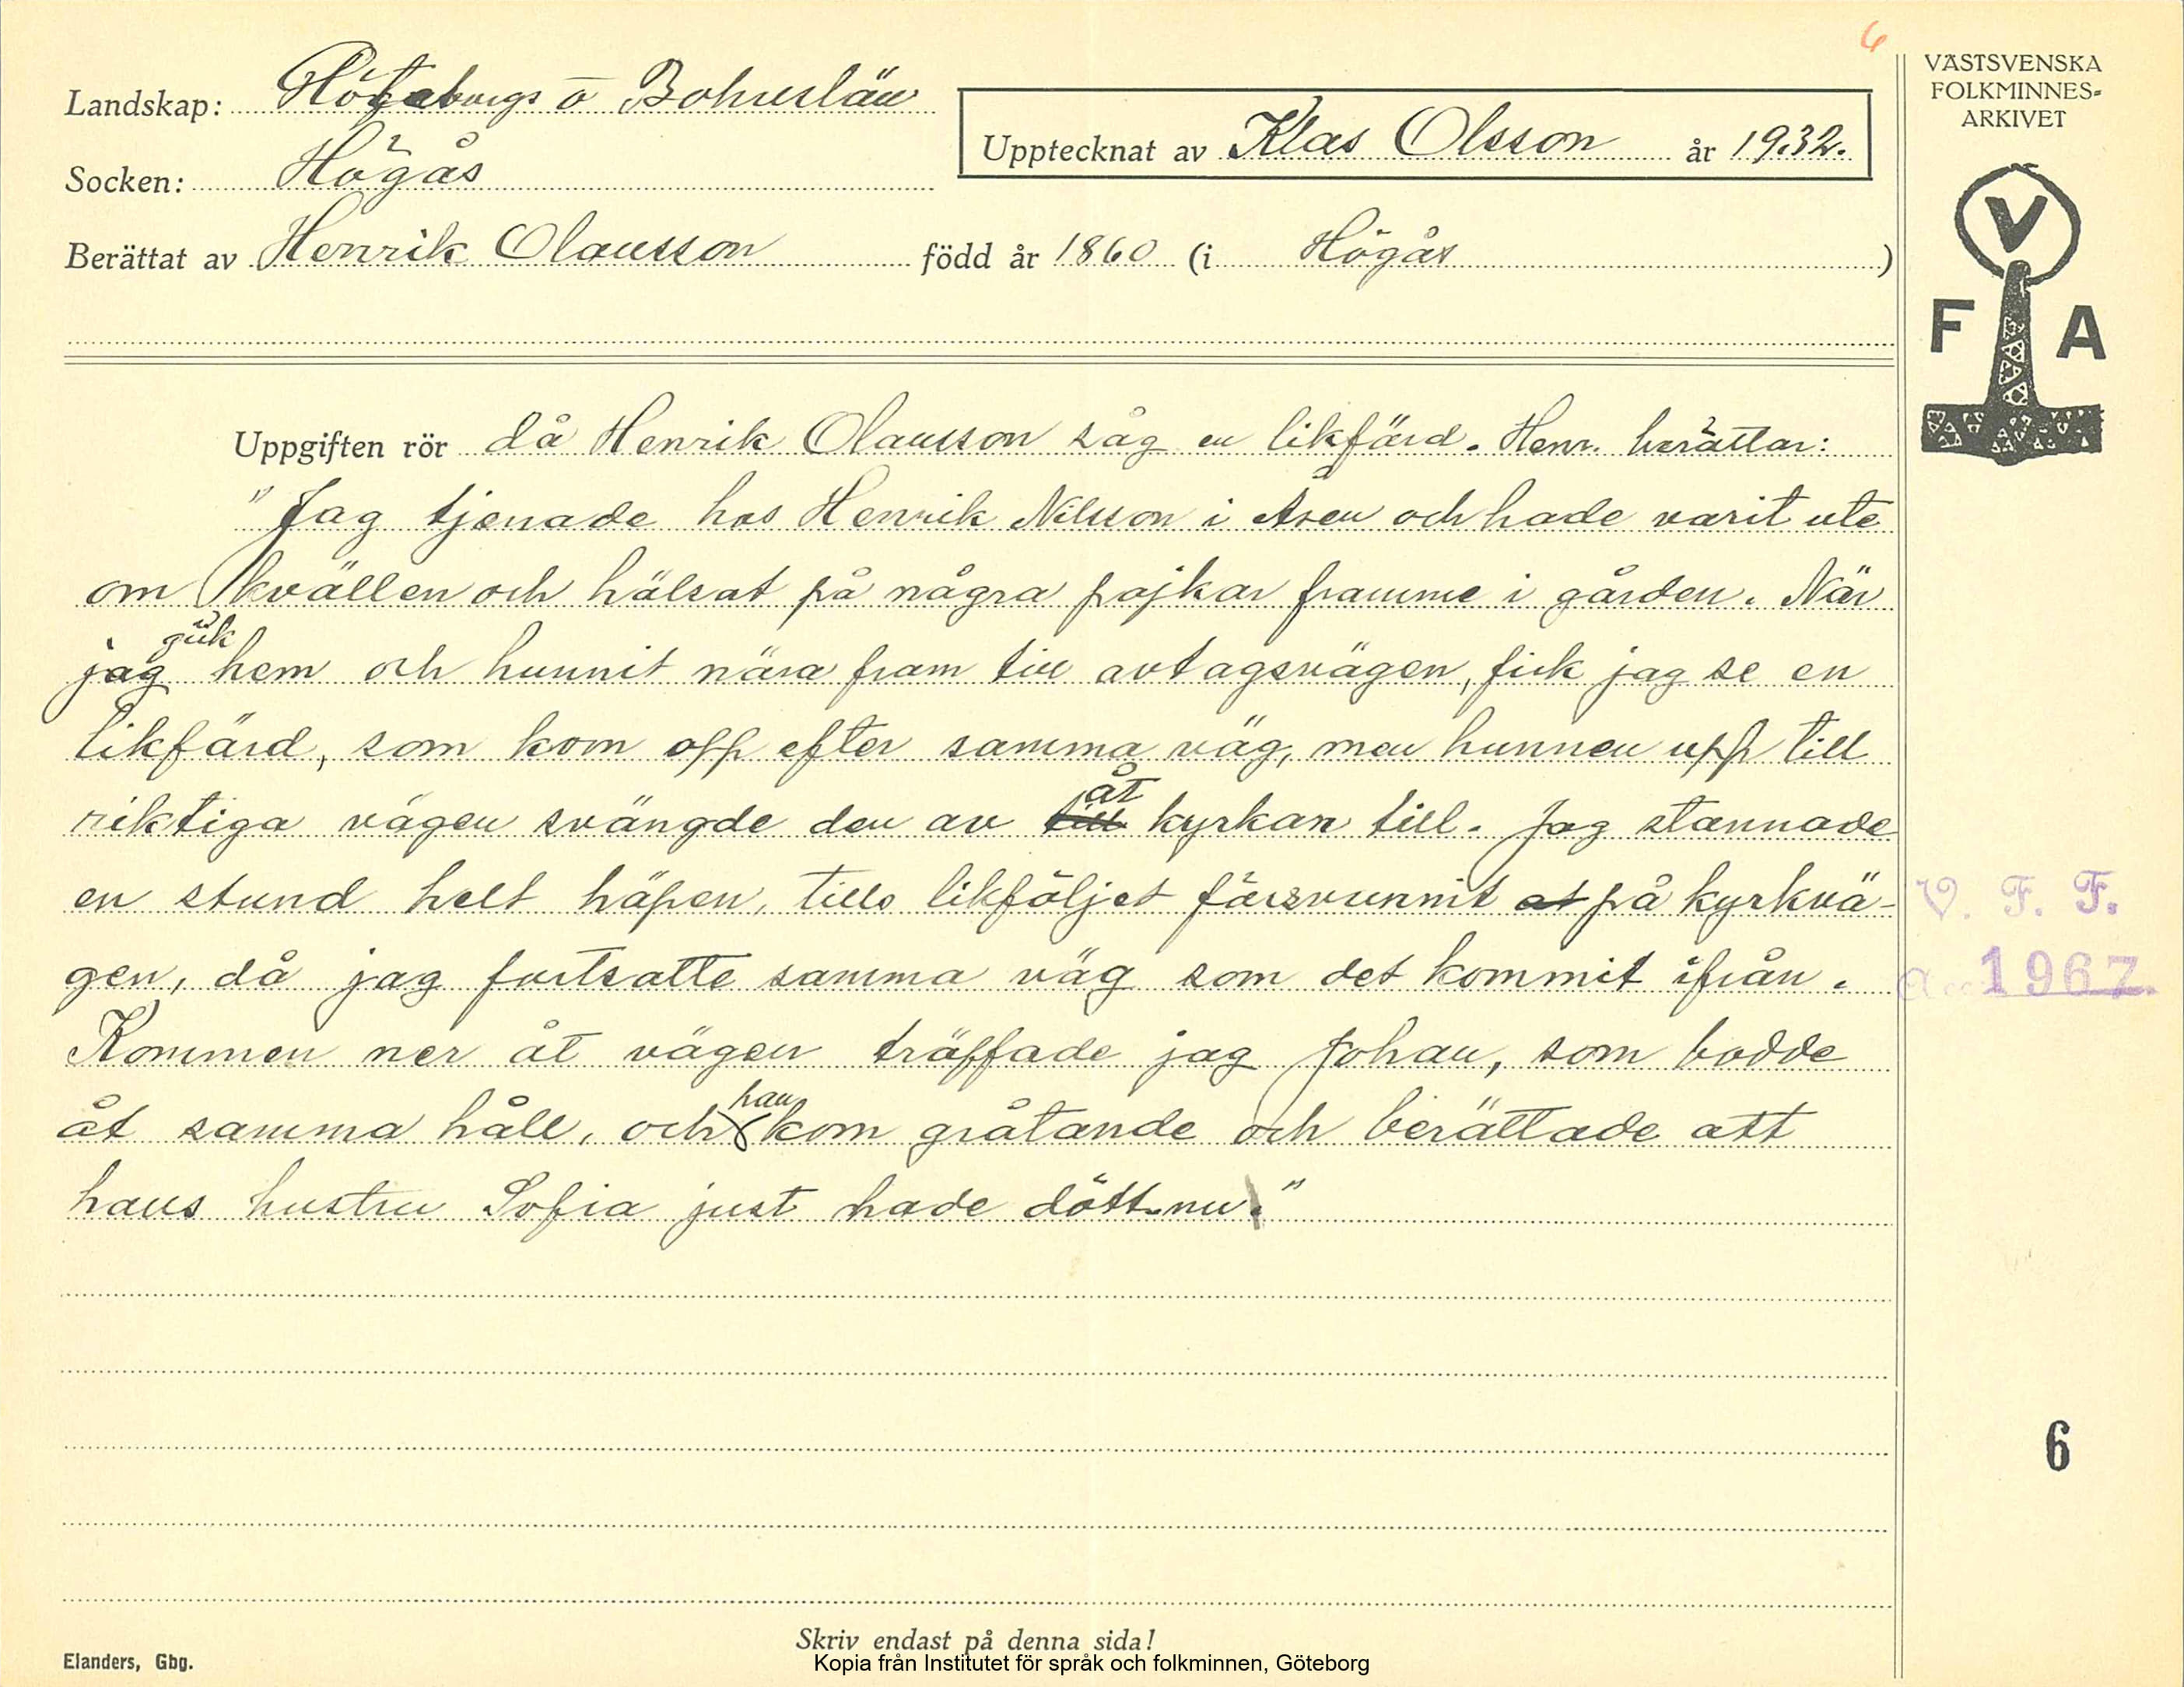 6
VÄSTSVENSKA
FOLKMINNES=
ARKIVET
Landskap: Götebourgs o Bohuslän
Upptecknat av Klas Olsson år 1932.
Socken: Högås
Berättat av Henrik Olausson född år 1860 (i Högås)
V
F A
Uppgiften rör då Henrik Olausson såg en likfärd. Henr. berättar:
"Jag tjenade hos Henrik Nilsson i Åsen och hade varit ute
om kvällen och hälsat på några pojkar framme i gården. När
gick
jag hem och hunnit nära fram till avtagsvägen, fick jag se en
likfärd, som kom opp efter samma väg, men hunnen upp till
åt
riktiga vägen svängde den av till kyrkan till. Jag stannade
en stund helt häpen, tills likföljet försvunnit at på kyrkvä-
gen, då jag fortsatte samma väg som det kommit ifrån.
Kommen ner åt vägen träffade jag Johan, som bodde
han
åt samma håll, och kom gråtande och berättade att
hans hustru Sofia just hade dött nu."
V. F. F.
Acc 1967.
6
Skriv endast på denna sida!
Elanders, Gbg.
Kopia från Institutet för språk och folkminnen, Göteborg